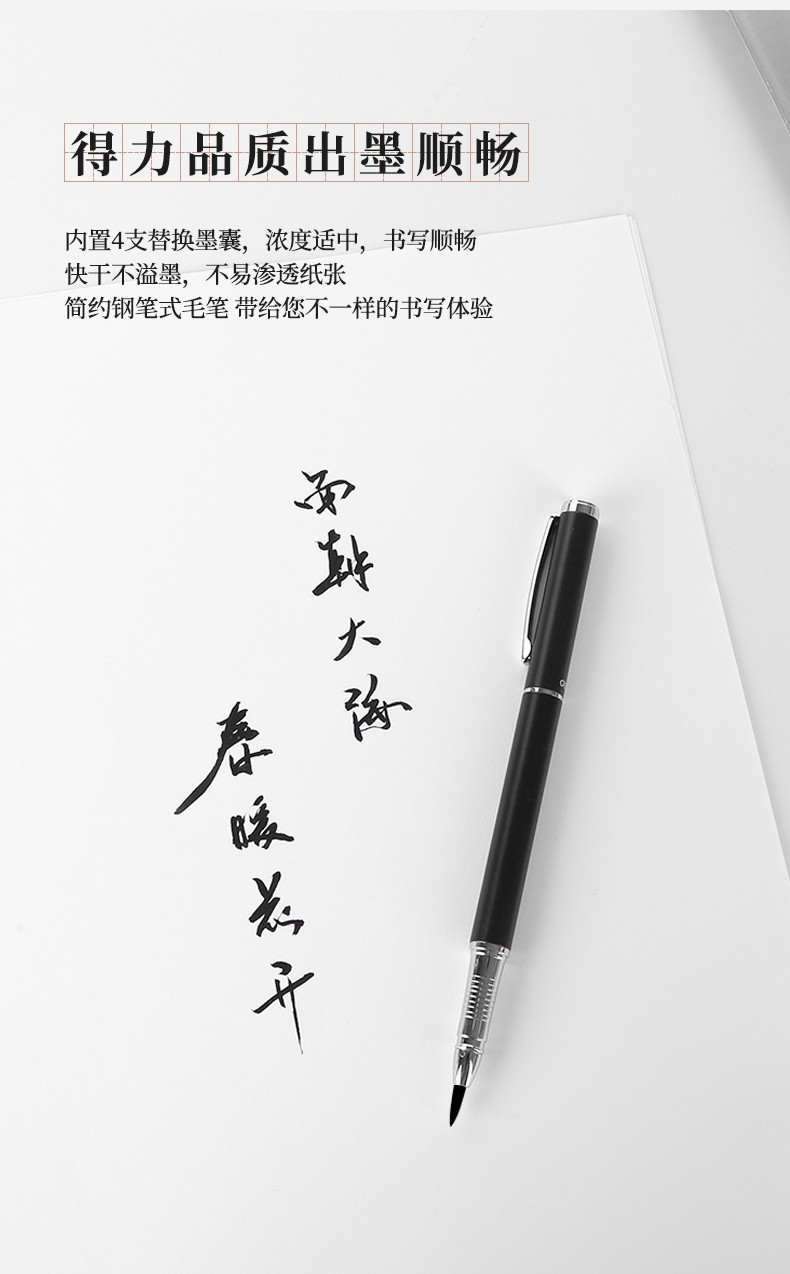 得力品质出墨顺畅
内置4支替换墨囊，浓度适中，书写顺畅
快干不溢墨，不易渗透纸张
简约钢笔式毛笔 带给您不一样的书写体验
面朝大海
春暖花开